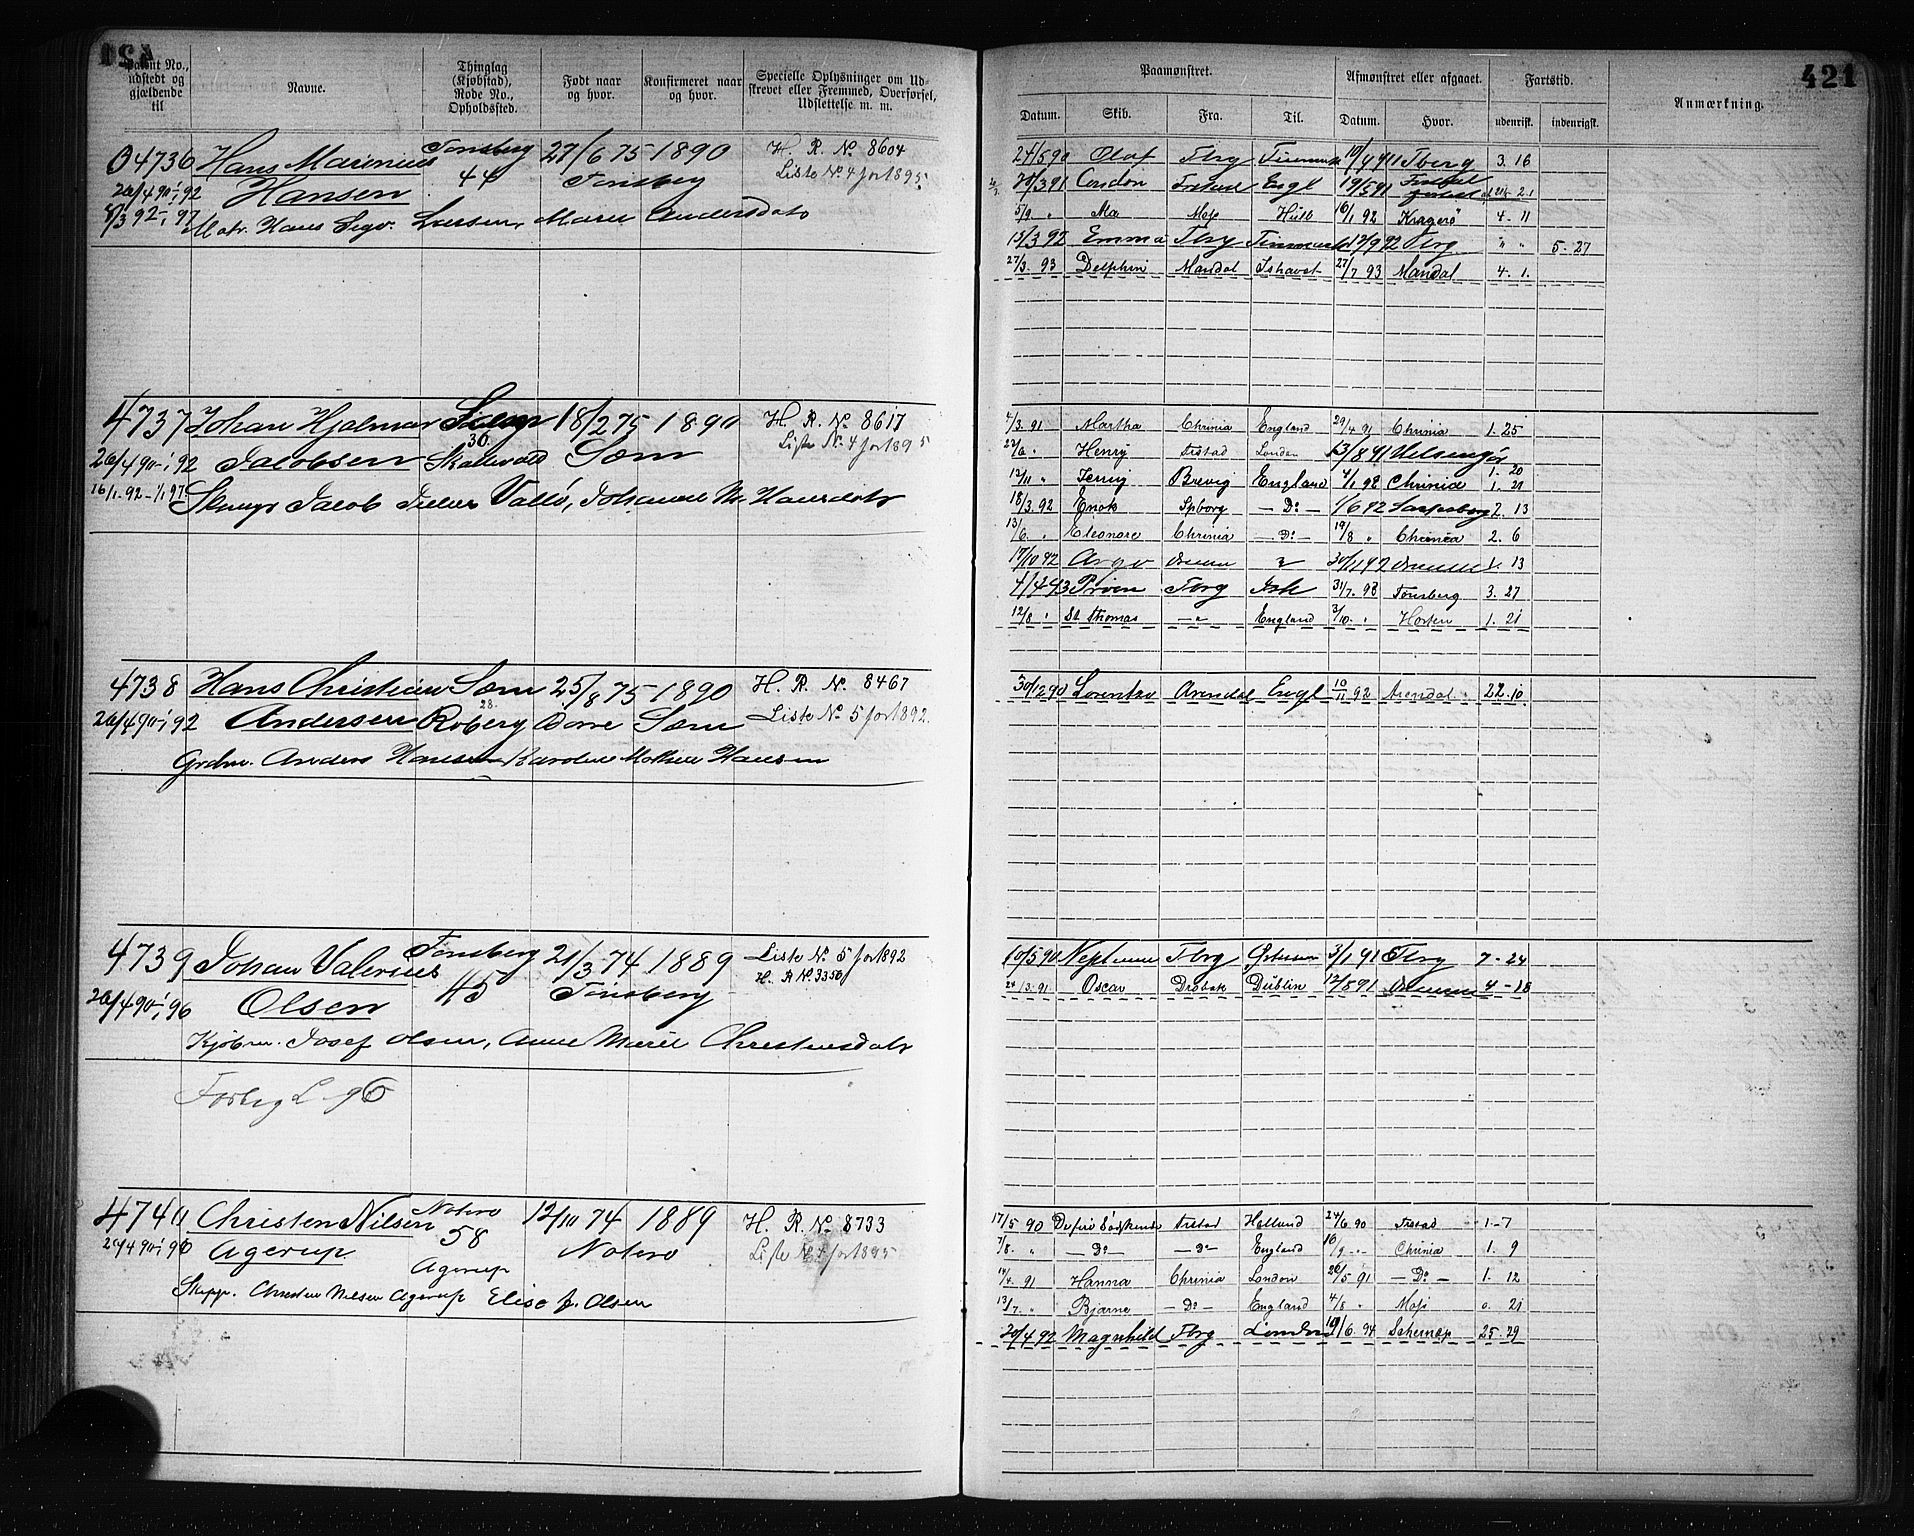 421
Patent No., udstedt og gjældende til
Navne.
Thinglag (Kjøbstad), Rode No., Opholdssted.
Født naar og hvor.
Konfirmeret naar og hvor.
Specielle Oplysninger om Udskrevet eller Fremmed, Overførsel, Udslettelse m. m.
Paamønstret.
Afmønstret eller afgaaet.
Fartstid.
Anmærkning.
421
Datum. Skib. Fra. Til. Datum. Hvor. udenrigsk. indenrigsk.
4736 Hans Marenius Tønsberg 27/6 75 1890 H. R. No 8604
44 Tønsberg Liste No 4 for 1895
26/4 90-1/1 92 Hansen
8/3 92-1/1 97 Hans Larsen, Maren Andersdatr
24/5 90 Olaf Tbrg 10/9 91 Tberg 3. 16
Condor Engl 19/5 91
5/9 " Ma Moss Hull 16/1 92 Kragerø 4. 11
15/3 92 Emma Tbrg 12/9 92 Tbrg " " 5. 27
27/3. 93 Delphin Mandal Ishavet 27/7 93 Mandal 4. 1.
4737 Johan Hjalmar Sæm 18/2 75 1890 H. R. No 8617
30. Liste No 4 for 1895
26/4 90-1/1 92 Jacobsen Skallevold Sæm
16/1. 92-1/1 97. Jacob Vallø, Johanne M. Hansdatr
4/3. 91 Martha Chrinia England 29/4 91 Chrinia 1. 25
22/6 " Henry Frstad London 13/8 91 Helsingør 1. 20
12/11 " Terrig Brevig England 4/1 92 Chrinia 1. 21
18/3. 92 Enok Spborg — Do — 1/6 92 Sarpsborg 2. 13
13/6. " Eleonore Chrinia — Do — 19/8 " Chrinia 2. 6
17/10 92 Argo 30/11 92 1. 13
4/4 93 Prøven Tbrg Ish 31/7. 93 Tønsberg 3. 27
12/8 " St Thomas — " — England 3/10. " Horten 1. 21
4738 Hans Christian Sæm 25/8 75 1890 H. R. No. 8467
28.
26/4 90-1/1 92 Andersen Roberg Borre Sæm Liste No 5 for 1892.
Grdm. Anders Hansen Karoline Mathea Hansen
30/12 90 Lorentzo Arendal Engl 10/11 92 Arendal 22. 10
4739 Johan Valerius Tønsberg 21/3 74 1889 Liste No 5 for 1892
45 H. R No 3356
26/4 90-1/1 96 Olsen Tønsberg
Kjøbm. Josef Olsen, Anne Marie Christensdatr
10/5 90 Neptun Tbrg 3/1 91 Tbrg 7 - 24
24/3. 91. Oscar Drøbak Dublin 12/8 91 4 - 18
Forbig L. 96
4740 Christen Nilsen Nøterø 12/10 74 1889 H. R. No. 8733
58 Liste No 4 for 1895
26/4 90-1/1 96 Agerup Nøterø
Agerup
Skipp. Christen Nilsen Agerup Elise J. Olsen
17/5 90 Defire Södskende Frstad Holland 24/6. 90 Frstad 1. - 7
7/8. " — Do — — Do — England 16/9 - " - Chrinia 1. 9
14/4. 91 Hanna Chrinia London 26/5 91 — Do — 1. 12
13/7. " Bjarne — Do — England 4/8 " Moss 0. 21
20/4 92 Magnhild Tbrg London 19/6. 94 25. 29